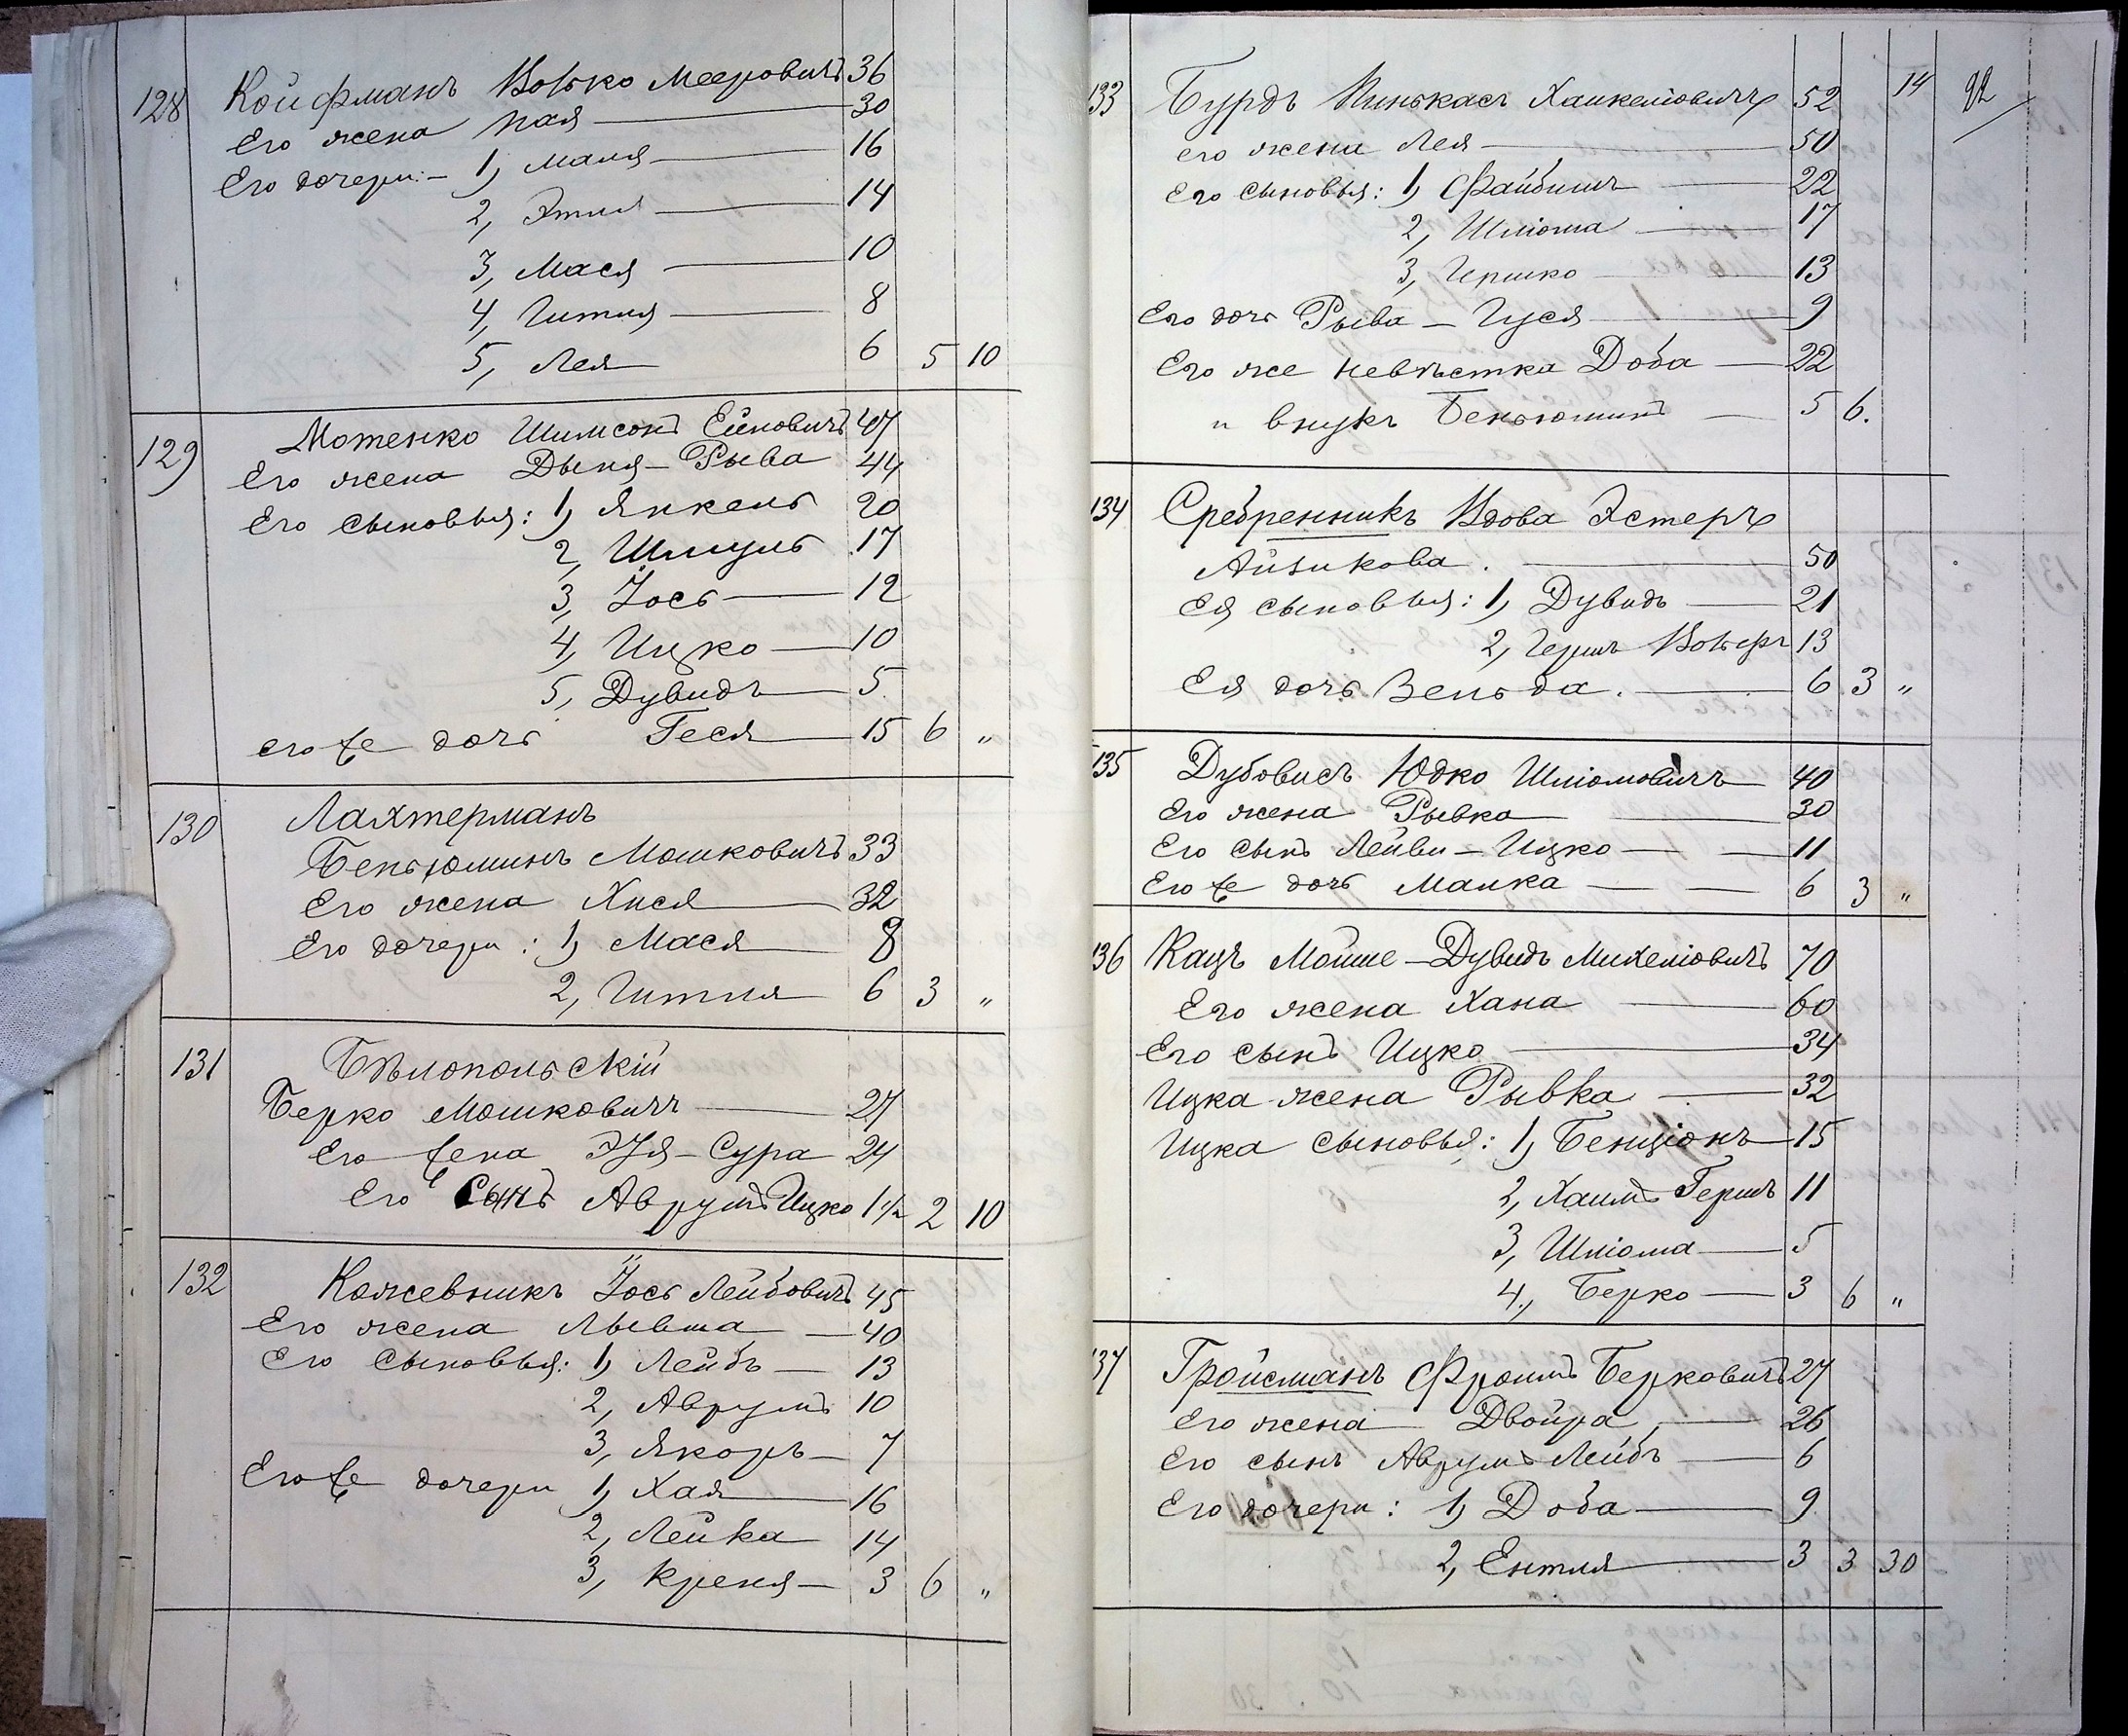 128 Койфманъ Волько Мееровичъ 36
Его жена Хая 30
Его дочери:- 1, Маля 16
2, Этля 14
3, Мася 10
4, Гитля 8
5, Лея 6 5 10
129 Мотенко Шимсонъ Ейновичъ 47
Его жена Дыня-Рыва 44
Его сыновья: 1, Янкель 20
2, Шмуль 17
3, Іось 12
4, Ицко 10
5, Дувидъ 5
его же дочь Геся 15 6 "
130 Лахтерманъ
Беньюминъ Мошковичъ 33
Его жена Хися 32
Его дочери: 1, Мася 8
2, Гитля 6 3 "
131 Бѣлопольскій
Берко Мошковичъ 27
Его жена Эйя-Сура 24
Его сынъ Аврумъ Ицко 1 ½ 2 10
132 Кожевникъ Іось Лейбовичъ 45
Его жена Лывша 40
Его сыновья: 1, Лейбъ 13
2, Аврумъ 10
3, Якоръ 7
Его же дочери 1, Хая 16
2, Лейка 14
3, Креня 3 6 "
14 92
133 Бурдъ Пинькасъ Хаикелiовичъ 52
его жена Лея 50
Его сыновья: 1, Файбишъ 22
2, Шліома 17
3, Гершко 13
Его дочь Рыва-Гуся 9
Его же невѣстка Доба 22
и внукъ Беньюминъ 5 6.
134 Сребренникъ Вдова Эстеръ
Айзикова. 50
Ея сыновья: 1, Дувидъ 21
2, Гершъ Вольфъ 13
Ея дочь Зельда. 6 3 "
135 Дубовисъ Юдко Шліомовичъ 40
Его жена Рывка 30
Его сынъ Лейви-Ицко 11
Его же дочь Малка 6 3 "
136 Кацъ Мойше-Дувидъ Михеліовичъ 70
Его жена Хана 60
Его сынъ Ицко 34
Ицка жена Рывка 32
Ицка сыновья: 1, Бенціонъ 15
2, Хаимъ Гершъ 11
3, Шліома 5
4., Берко 3 6 "
137 Гройсманъ Фроимъ Берковичъ 27
Его жена Двойра 26
Его сынъ Аврумъ Лейбъ 6
Его дочери: 1, Доба 9
2, Ентля 3 3 30